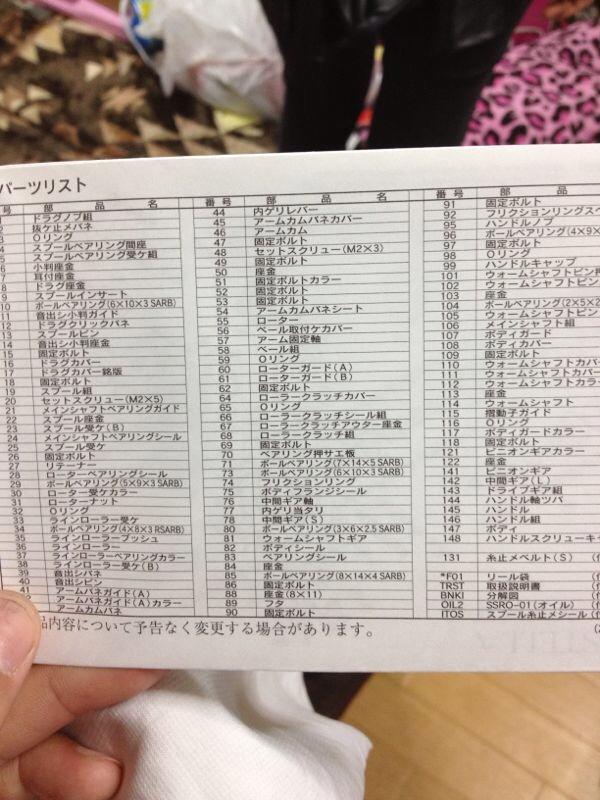 パーツリスト
号 部 品 名
ドラグノブ組
抜ケ止メバネ
Oリング
スプールベアリング間座
スプールベアリング受ケ組
小判座金
耳付座金
ドラグ座金
9 スプールインサート
10 ボールベアリング(6×10×3 SARB)
11 音出シ小判ガイド
12 ドラグクリックバネ
13 スプールピン
14 音出シ小判座金
15 固定ボルト
16 ドラグカバー
17 ドラグカバー銘版
18 固定ボルト
19 スプール組
20 セットスクリュー(M2×5)
21 メインシャフトベアリングガイド
22 スプール座金
23 スプール受ケ(B)
24 メインシャフトベアリングシール
25 スプール受ケ
26 固定ボルト
27 リテーナー
28 ローターベアリングシール
29 ボールベアリング(5×9×3 SARB)
30 ローター受ケカラー
31 ローターナット
32 Oリング
33 ラインローラー受ケ
34 ボールベアリング(4×8×3 RSARB)
35 ラインローラーブッシュ
36 ラインローラー
37 ラインローラーベアリングカラー
38 ラインローラー受ケ(B)
39 音出シバネ
40 音出シピン
41 アームバネガイド(A)
アームバネガイド(A)カラー
アームカムバネ
番号 部 品 名
44 内ゲリレバー
45 アームカムバネカバー
46 アームカム
47 固定ボルト
48 セットスクリュー(M2×3)
49 固定ボルト
50 座金
51 固定ボルトカラー
52 固定ボルト
53 固定ボルト
54 アームカムバネシート
55 ローター
56 ベール取付ケカバー
57 アーム固定軸
58 ベール組
59 Oリング
60 ローターガード(A)
61 ローターガード(B)
62 固定ボルト
64 ローラークラッチカバー
65 Oリング
66 ローラークラッチシール組
67 ローラークラッチアウター座金
68 ローラークラッチ組
69 固定ボルト
70 ベアリング押サエ板
71 ボールベアリング(7×14×5 SARB)
73 ボールベアリング(6×10×3 SARB)
74 フリクションリング
75 ボディフランジシール
76 中間ギア軸
77 内ゲリ当タリ
78 中間ギア(S)
80 ボールベアリング(3×6×2.5 SARB)
81 ウォームシャフトギア
82 ボディシール
83 ベアリングシール
84 座金
85 ボールベアリング(8×14×4 SARB)
86 固定ボルト
88 座金(8×11)
89 フタ
90 固定ボルト
番号 部 品
91 固定ボルト
92 フリクションリングスペ
95 ハンドルノブ
96 ボールベアリング(4×9×
97 固定ボルト
98 Oリング
99 ハンドルキャップ
101 ウォームシャフトピン押
102 ウォームシャフトピン
103 座金
104 ボールベアリング(2×5×2
105 ウォームシャフトピン
106 メインシャフト組
107 ボディガード
108 ボディカバー
109 固定ボルト
110 ウォームシャフトカバ
111 ウォームシャフトカバ
112 ウォームシャフトカラ
113 座金
114 ウォームシャフト
115 摺動子ガイド
116 Oリング
117 ボディガードカラー
118 固定ボルト
121 ピニオンギアカラー
122 座金
141 ピニオンギア
142 中間ギア(L)
143 ドライブギア組
144 ハンドル軸ツバ
145 ハンドル
146 ハンドル組
147 ボディ
148 ハンドルスクリューキ
131 糸止メベルト(S) (
*F01 リール袋 (
TRST 取扱説明書 (
BNKI 分解図 (
OIL2 SSRO-01(オイル) (
ITOS スプール糸止メシール (
品内容について予告なく変更する場合があります。